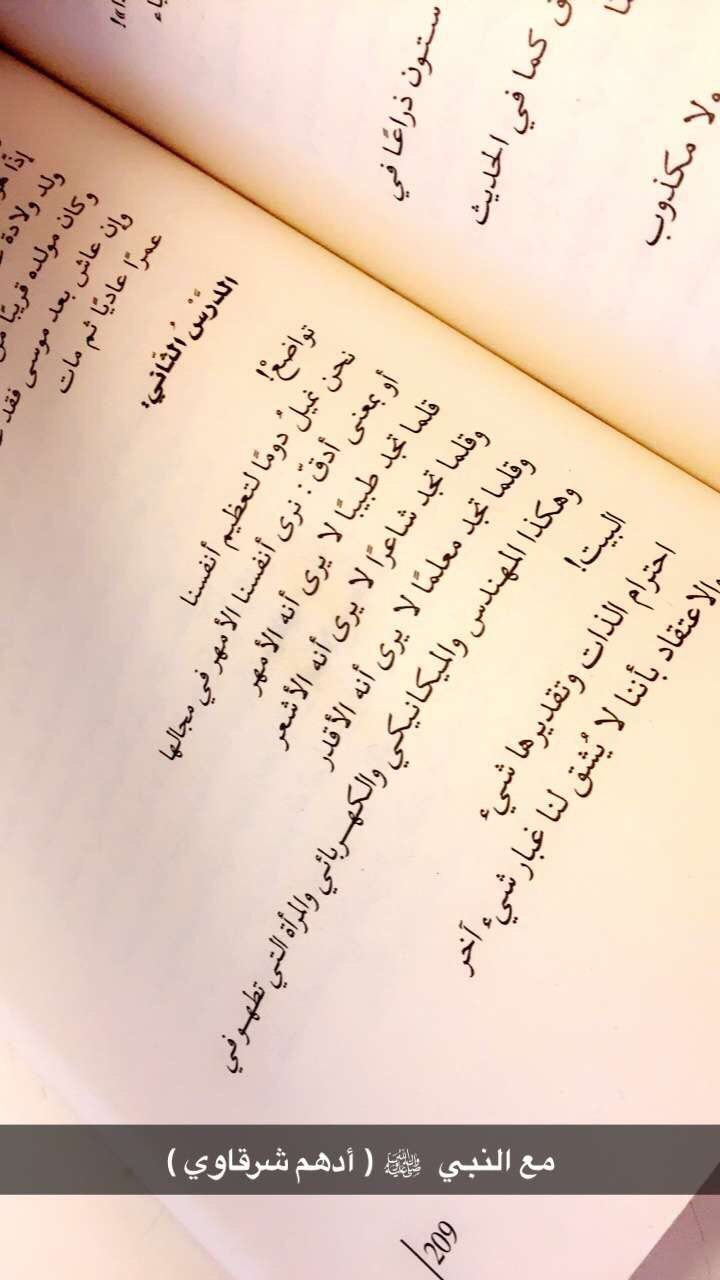 ستون ذراعًا في
كما في الحديث
ولا مكذوب
إذًا هو
ولد ولادة
وكان مولده قريبًا من
وإن عاش بعد موسى فقد
عمرًا عاديًا ثم مات
الدَّرْسُ الثَّاني:
تواضعْ!
نحن نميلُ دُومًا لتعظيم أنفسنا
أو بمعنى أدقّ: نرى أنفسنا الأمهر في مجالها
قلما تجد طبيبًا لا يرى أنه الأمهر
وقلما تجد شاعرًا لا يرى أنه الأشعر
وقلما تجد معلمًا لا يرى أنه الأقدر
وهكذا المهندس والميكانيكي والكهربائي والمرأة التي تطهو في
البيت!
احترام الذات وتقديرها شيء
والاعتقاد بأننا لا يُشق لنا غبار شيء آخر
مع النبي ﷺ ( أدهم شرقاوي )
209